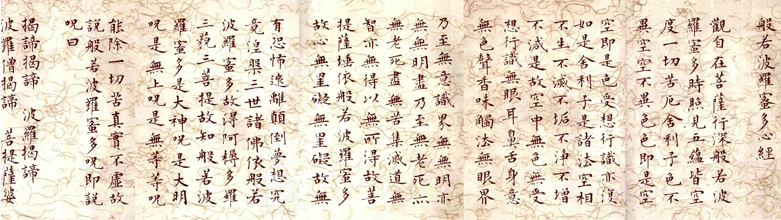 般若波羅蜜多心經
觀自在菩薩行深般若波
羅蜜多時照見五蘊皆空
度一切苦厄舍利子色不
異空空不異色色即是空
空即是色受想行識亦復
如是舍利子是諸法空相
不生不滅不垢不淨不增
不減是故空中無色無受
想行識無眼耳鼻舌身意
無色聲香味觸法無眼界
乃至無意識界無無明亦
無無明盡乃至無老死亦
無老死盡無苦集滅道無
智亦無得以無所得故菩
提薩埵依般若波羅蜜多
故心無罣礙無罣礙故無
有恐怖遠離顛倒夢想究
竟涅槃三世諸佛依般若
波羅蜜多故得阿耨多羅
三藐三菩提故知般若波
羅蜜多是大神呪是大明
呪是無上呪是無等等呪
能除一切苦真實不虛故
說般若波羅蜜多呪即說
呪曰
揭諦揭諦 波羅揭諦
波羅僧揭諦 菩提薩婆